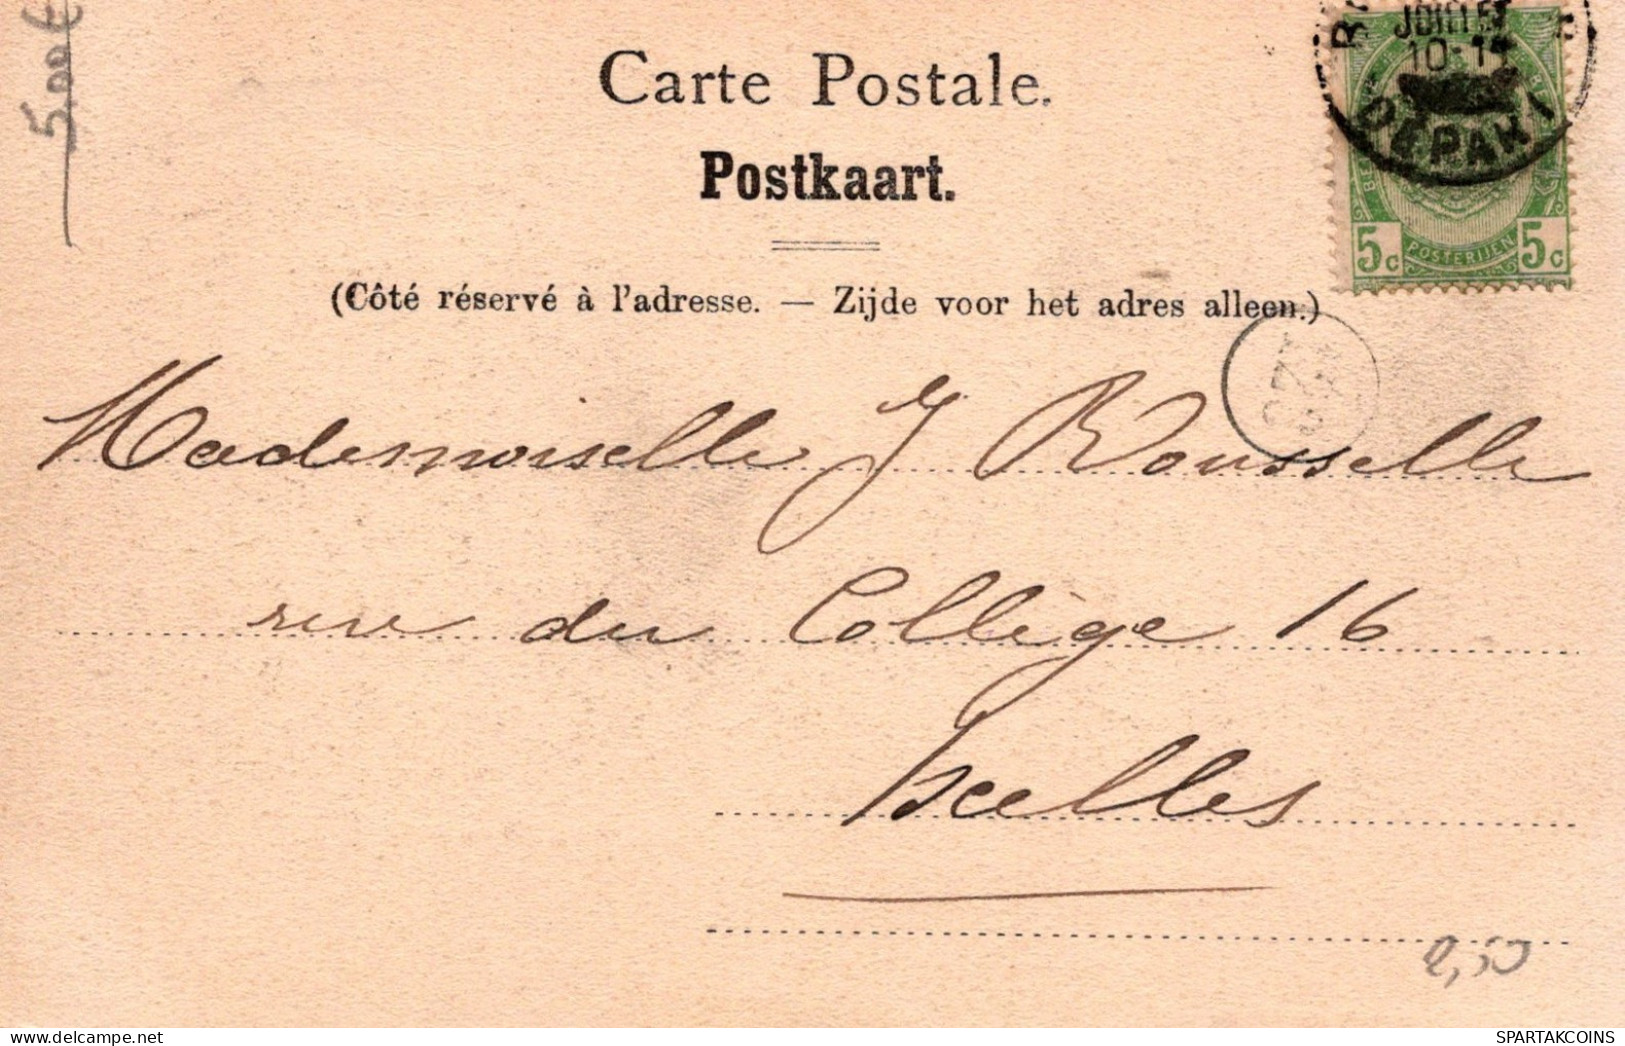 5,00€
Carte Postale.
Postkaart.
(Côté réservé à l'adresse. — Zijde voor het adres alleen.)
JUILLET
10-11
DEPART
5c POSTERIJEN 5c
Mademoiselle J Rousselle
rue du Collège 16
Ixelles
2,50
www.delcampe.net
SPARTAKCOINS